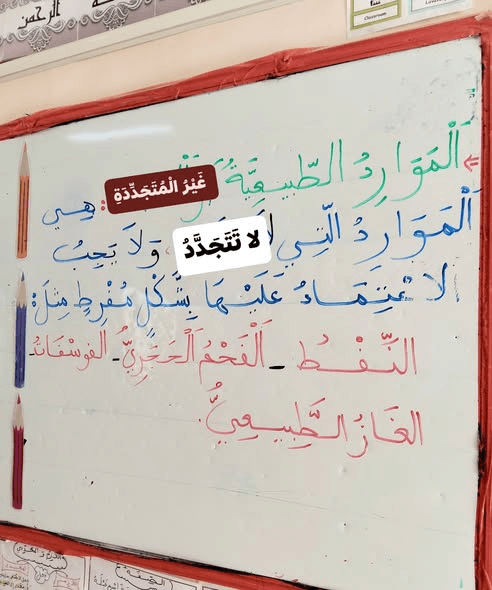 الرحمن
Classroom
اَلْمَوَارِدُ الطَّبِيعِيَّةُ غَيْرُ الْمُتَجَدِّدَةِ : هِيَ
اَلْمَوَارِدُ الَّتِي لا تَتَجَدَّدُ وَلَا يَجِبُ
الاعْتِمَادُ عَلَيْهَا بِشَكْلٍ مُفْرِطٍ مِثْلَ:
النِّفْطُ - اَلْفَحْمُ اَلْحَجَرِيُّ - الفوسْفَاتُ -
الغَازُ الطَّبِيعِيُّ.